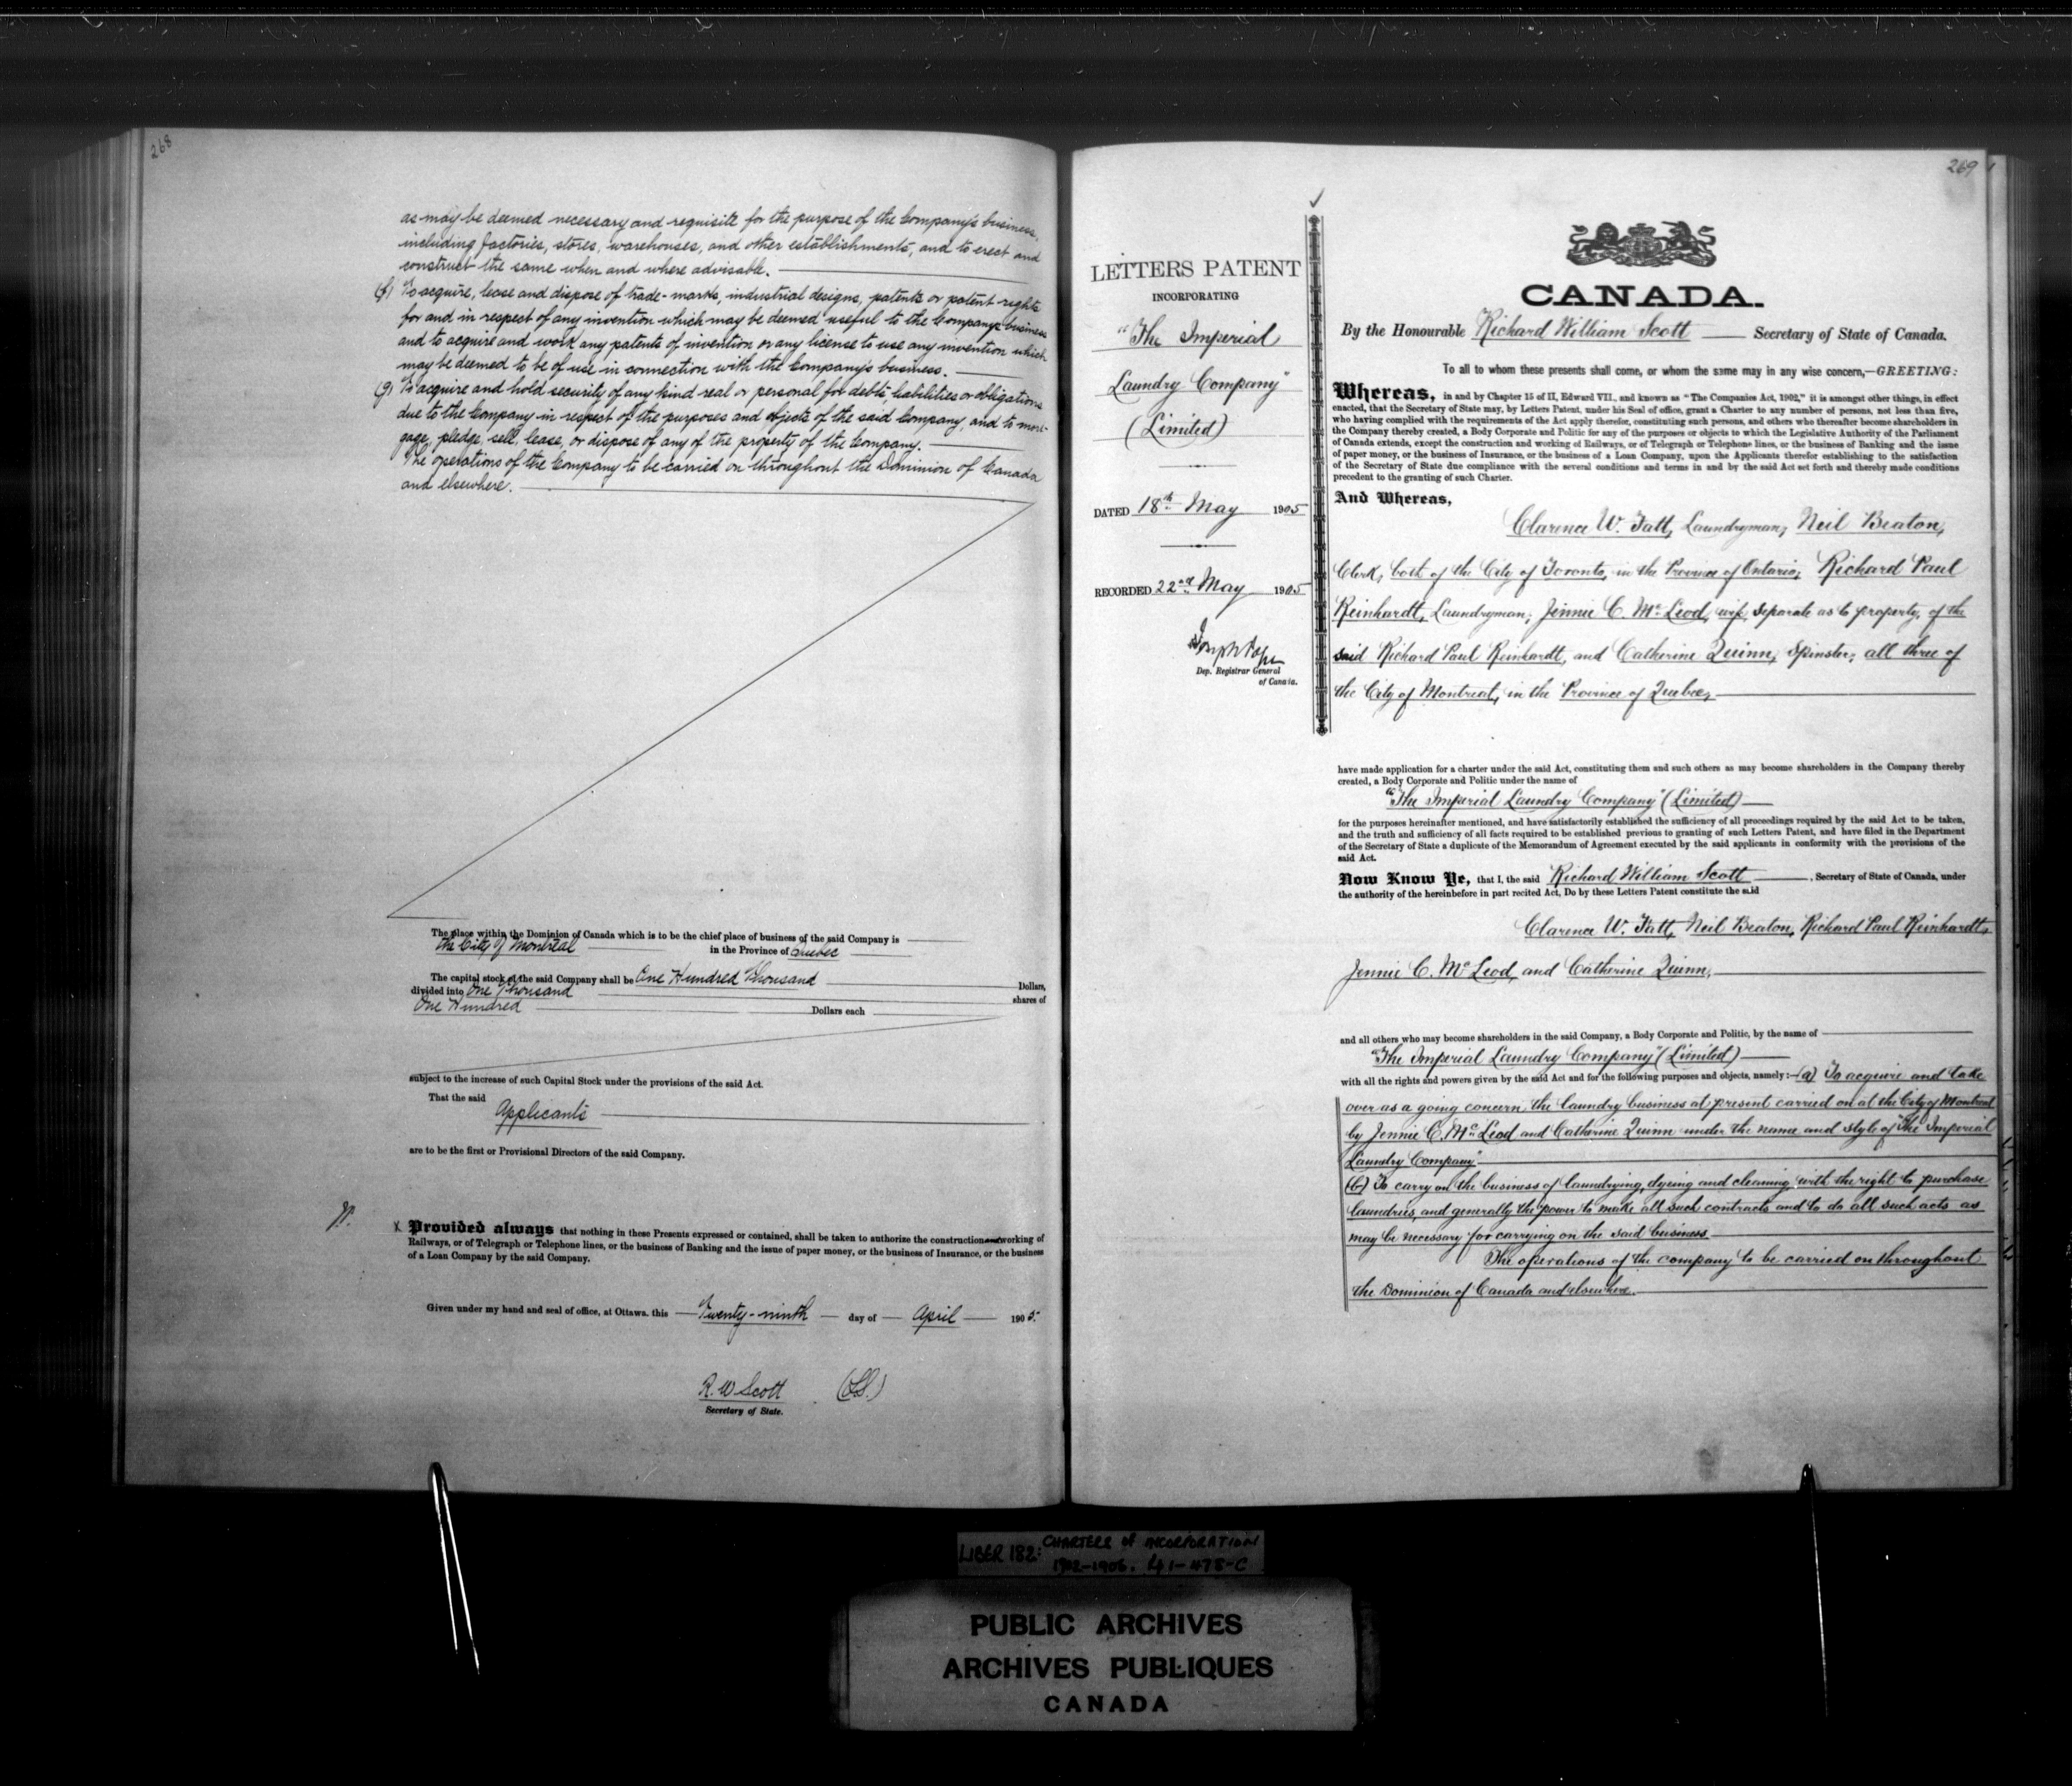 268
as may be deemed necessary and requisite for the purpose of the Company's business,
including factories, stores, warehouses, and other establishments, and to erect and
construct the same when and where advisable.
(f) To acquire, lease and dispose of trade-marks, industrial designs, patents or patent rights
for and in respect of any invention which may be deemed useful to the Company's business
and to acquire and work any patents of invention or any license to use any invention which
may be deemed to be of use in connection with the Company's business.
(g) To acquire and hold security of any kind real or personal for debts liabilities or obligations
due to the Company in respect of the purposes and objects of the said Company, and to mort-
gage, pledge, sell, lease, or dispose of any of the property of the Company.
The operations of the Company to be carried on throughout the Dominion of Canada
and elsewhere.
The place within the Dominion of Canada which is to be the chief place of business of the said Company is
the City of Montreal in the Province of Quebec
The capital stock of the said Company shall be One Hundred Thousand Dollars,
divided into One Thousand shares of
One Hundred Dollars each
subject to the increase of such Capital Stock under the provisions of the said Act.
That the said
Applicants
are to be the first or Provisional Directors of the said Company.
X Provided always that nothing in these Presents expressed or contained, shall be taken to authorize the construction and working of
Railways, or of Telegraph or Telephone lines, or the business of Banking and the issue of paper money, or the business of Insurance, or the business
of a Loan Company by the said Company.
Given under my hand and seal of office, at Ottawa. this Twenty-ninth day of April 1905.
R. W Scott (LS.)
Secretary of State.
269
LETTERS PATENT
INCORPORATING
"The Imperial
Laundry Company"
(Limited)
DATED 18th May 1905
RECORDED 22nd May 1905
Joseph Pope
Dep. Registrar General
of Canada.
CANADA.
By the Honourable Richard William Scott Secretary of State of Canada.
To all to whom these presents shall come, or whom the same may in any wise concern,—GREETING:
Whereas, in and by Chapter 15 of II, Edward VII., and known as "The Companies Act, 1902," it is amongst other things, in effect
enacted, that the Secretary of State may, by Letters Patent, under his Seal of office, grant a Charter to any number of persons, not less than five,
who having complied with the requirements of the Act apply therefor, constituting such persons, and others who thereafter become shareholders in
the Company thereby created, a Body Corporate and Politic for any of the purposes or objects to which the Legislative Authority of the Parliament
of Canada extends, except the construction and working of Railways, or of Telegraph or Telephone lines, or the business of Banking and the issue
of paper money, or the business of Insurance, or the business of a Loan Company, upon the Applicants therefor establishing to the satisfaction
of the Secretary of State due compliance with the several conditions and terms in and by the said Act set forth and thereby made conditions
precedent to the granting of such Charter.
And Whereas,
Clarence W. Tatt, Laundryman, Neil Beaton,
Clerk, both of the City of Toronto, in the Province of Ontario; Richard Paul
Reinhardt, Laundryman; Jennie C. McLeod, wife, separate as to property, of the
said Richard Paul Reinhardt, and Catherine Quinn, Spinster, all three of
the City of Montreal, in the Province of Quebec,
have made application for a charter under the said Act, constituting them and such others as may become shareholders in the Company thereby
created, a Body Corporate and Politic under the name of
"The Imperial Laundry Company" (Limited)
for the purposes hereinafter mentioned, and have satisfactorily established the sufficiency of all proceedings required by the said Act to be taken,
and the truth and sufficiency of all facts required to be established previous to granting of such Letters Patent, and have filed in the Department
of the Secretary of State a duplicate of the Memorandum of Agreement executed by the said applicants in conformity with the provisions of the
said Act.
Now Know Ye, that I, the said Richard William Scott, Secretary of State of Canada, under
the authority of the hereinbefore in part recited Act, Do by these Letters Patent constitute the said
Clarence W. Tatt, Neil Beaton, Richard Paul Reinhardt,
Jennie C. McLeod and Catherine Quinn,
and all others who may become shareholders in the said Company, a Body Corporate and Politic, by the name of
"The Imperial Laundry Company" (Limited)
with all the rights and powers given by the said Act and for the following purposes and objects, namely:—(a) To acquire and take
over as a going concern the laundry business at present carried on at the City of Montreal
by Jennie C. McLeod and Catherine Quinn under the name and style of "The Imperial
Laundry Company"
(b) To carry on the business of laundrying, dyeing and cleaning with the right to purchase
laundries, and generally the power to make all such contracts and to do all such acts as
may be necessary for carrying on the said business
The operations of the company to be carried on throughout
the Dominion of Canada and elsewhere.
LIBER 182: CHARTERS of INCORPORATION
1902-1906. 41-478-C
PUBLIC ARCHIVES
ARCHIVES PUBLIQUES
CANADA